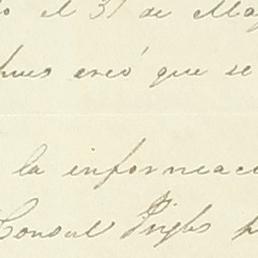 el 31 de May
pues creó que se
la informeaci
Consul Ingls p